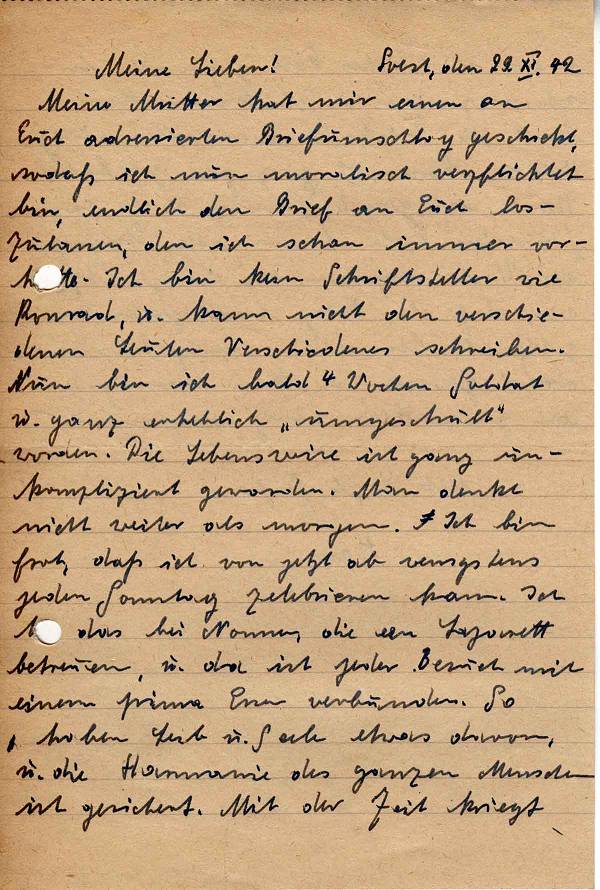 Meine Lieben! Soest, den 22. XI. 42
Meine Mutter hat mir einen an
Euch adressierten Briefumschlag geschickt,
sodaß ich nun moralisch verpflichtet
bin, endlich den Brief an Euch los-
zulassen, den ich schon immer vor-
h tte. Ich bin kein Schriftsteller wie
Konrad, u. kann nicht den verschie-
denen Leuten Verschiedenes schreiben.
Nun bin ich bald 4 Wochen Soldat
u. ganz erheblich „umgeschult“
worden. Die Lebensweise ist ganz un-
kompliziert geworden. Man denkt
nicht weiter als morgen. Ich bin
froh, daß ich von jetzt ab wenigstens
jeden Sonntag zelebrieren kann. Ich
das bei Nonnen, die ein Lazarett
betreuen, u. da ist jeder Besuch mit
einem prima Essen verbunden. So
haben Leib u. Seele etwas davon,
u. die Harmonie des ganzen Menschen
ist gesichert. Mit der Zeit kriegt